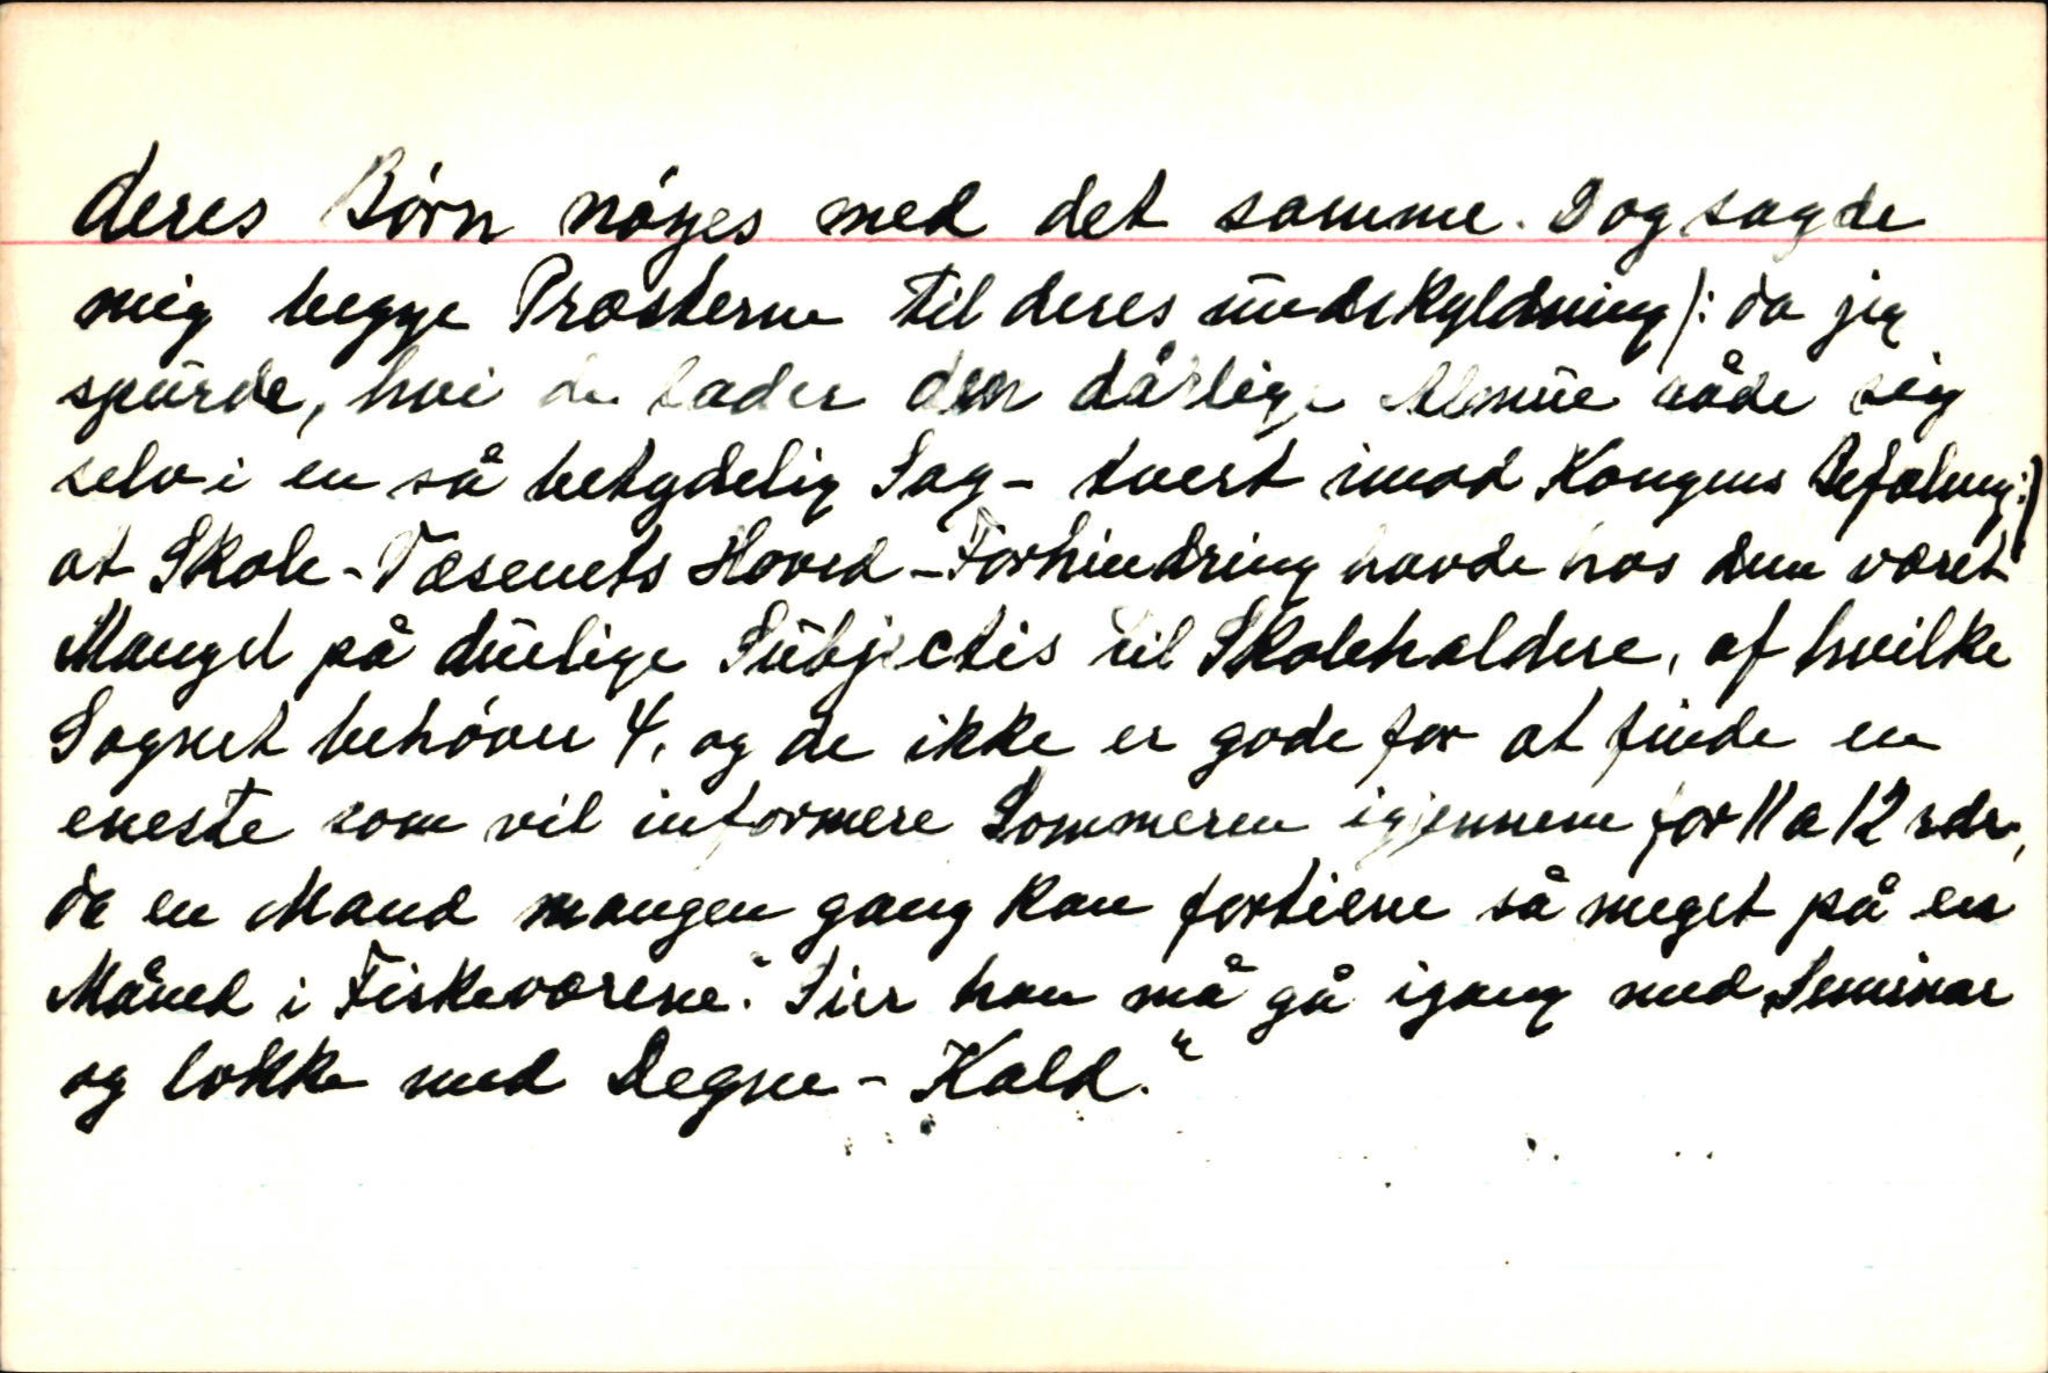 deres Børn nøyes med det samme. Dog sagde
mig begge Præsterne til deres undskyldning /: da jeg
spurde, hvi de lader den dårlige Almue råde sig
selv i en så betydelig Sag - tvert imod Kongens Befaling:/
at Skole-Væsenets Hoved-Forhindring havde hos dem været
Mangel på duelige Subjectis til Skoleholdere, af hvilke
Sognet behøver 4, og de ikke er gode for at finde en
eneste som vil informere Sommeren igjennem for 11 a 12 rdr,
da en Mand mangen gang kan fortiene så meget på en
Måned i Fiskeværene." Sier han må gå igang med Seminar
og lokke med Degne-Kald."